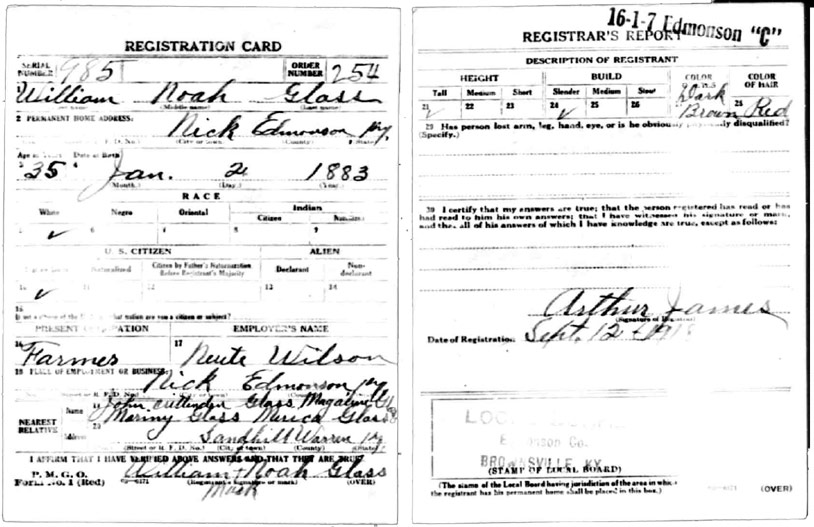 REGISTRATION CARD
SERIAL NUMBER 985 ORDER NUMBER 254
William Noah Glass
(Middle name) (Last name)
2 PERMANENT HOME ADDRESS:
Nick Edmonson Ky
(City or town) (County) (State)
Age in Years Date of Birth
3 35 4 Jan. 2 1883
(Month.) (Day.) (Year.)
RACE
White Negro Oriental Indian
Citizen
5 ✓ 6 7 8 9
U. S. CITIZEN ALIEN
Naturalized Citizen by Father's Naturalization Before Registrant's Majority Declarant Non-declarant
10 ✓ 11 12 13 14
15
If not a citizen of the U. S., of what nation are you a citizen or subject?
PRESENT OCCUPATION EMPLOYER'S NAME
16 Farmer 17 Wilson
18 PLACE OF EMPLOYMENT OR BUSINESS:
Nick Edmonson Ky
NEAREST RELATIVE
Name 19 John Glass
20 Glass Glass
Address Sandhill Warren Ky
(Street or R. F. D. No.) (City or town) (County) (State)
I AFFIRM THAT I HAVE VERIFIED ABOVE ANSWERS AND THAT THEY ARE TRUE
P. M. G. O.
Form No. 1 (Red)
William Noah Glass
(Registrant's signature or mark) (OVER)
Mark
16-1-7 Edmonson "C"
REGISTRAR'S REPORT
DESCRIPTION OF REGISTRANT
HEIGHT BUILD COLOR OF EYES COLOR OF HAIR
Tall Medium Short Slender Medium Stout
21 ✓ 22 23 24 ✓ 25 26 Dark Brown 28 Red
29 Has person lost arm, leg, hand, eye, or is he obviously physically disqualified?
(Specify.)
30 I certify that my answers are true; that the person registered has read or has
had read to him his own answers; that I have witnessed his signature or mark,
and that all of his answers of which I have knowledge are true, except as follows:
Arthur James
Date of Registration Sept. 12 - 1918
Edmonson Co.
BROWNSVILLE, KY.
(STAMP OF LOCAL BOARD)
(The stamp of the Local Board having jurisdiction of the area in which
the registrant has his permanent home shall be placed in this box.)
(OVER)